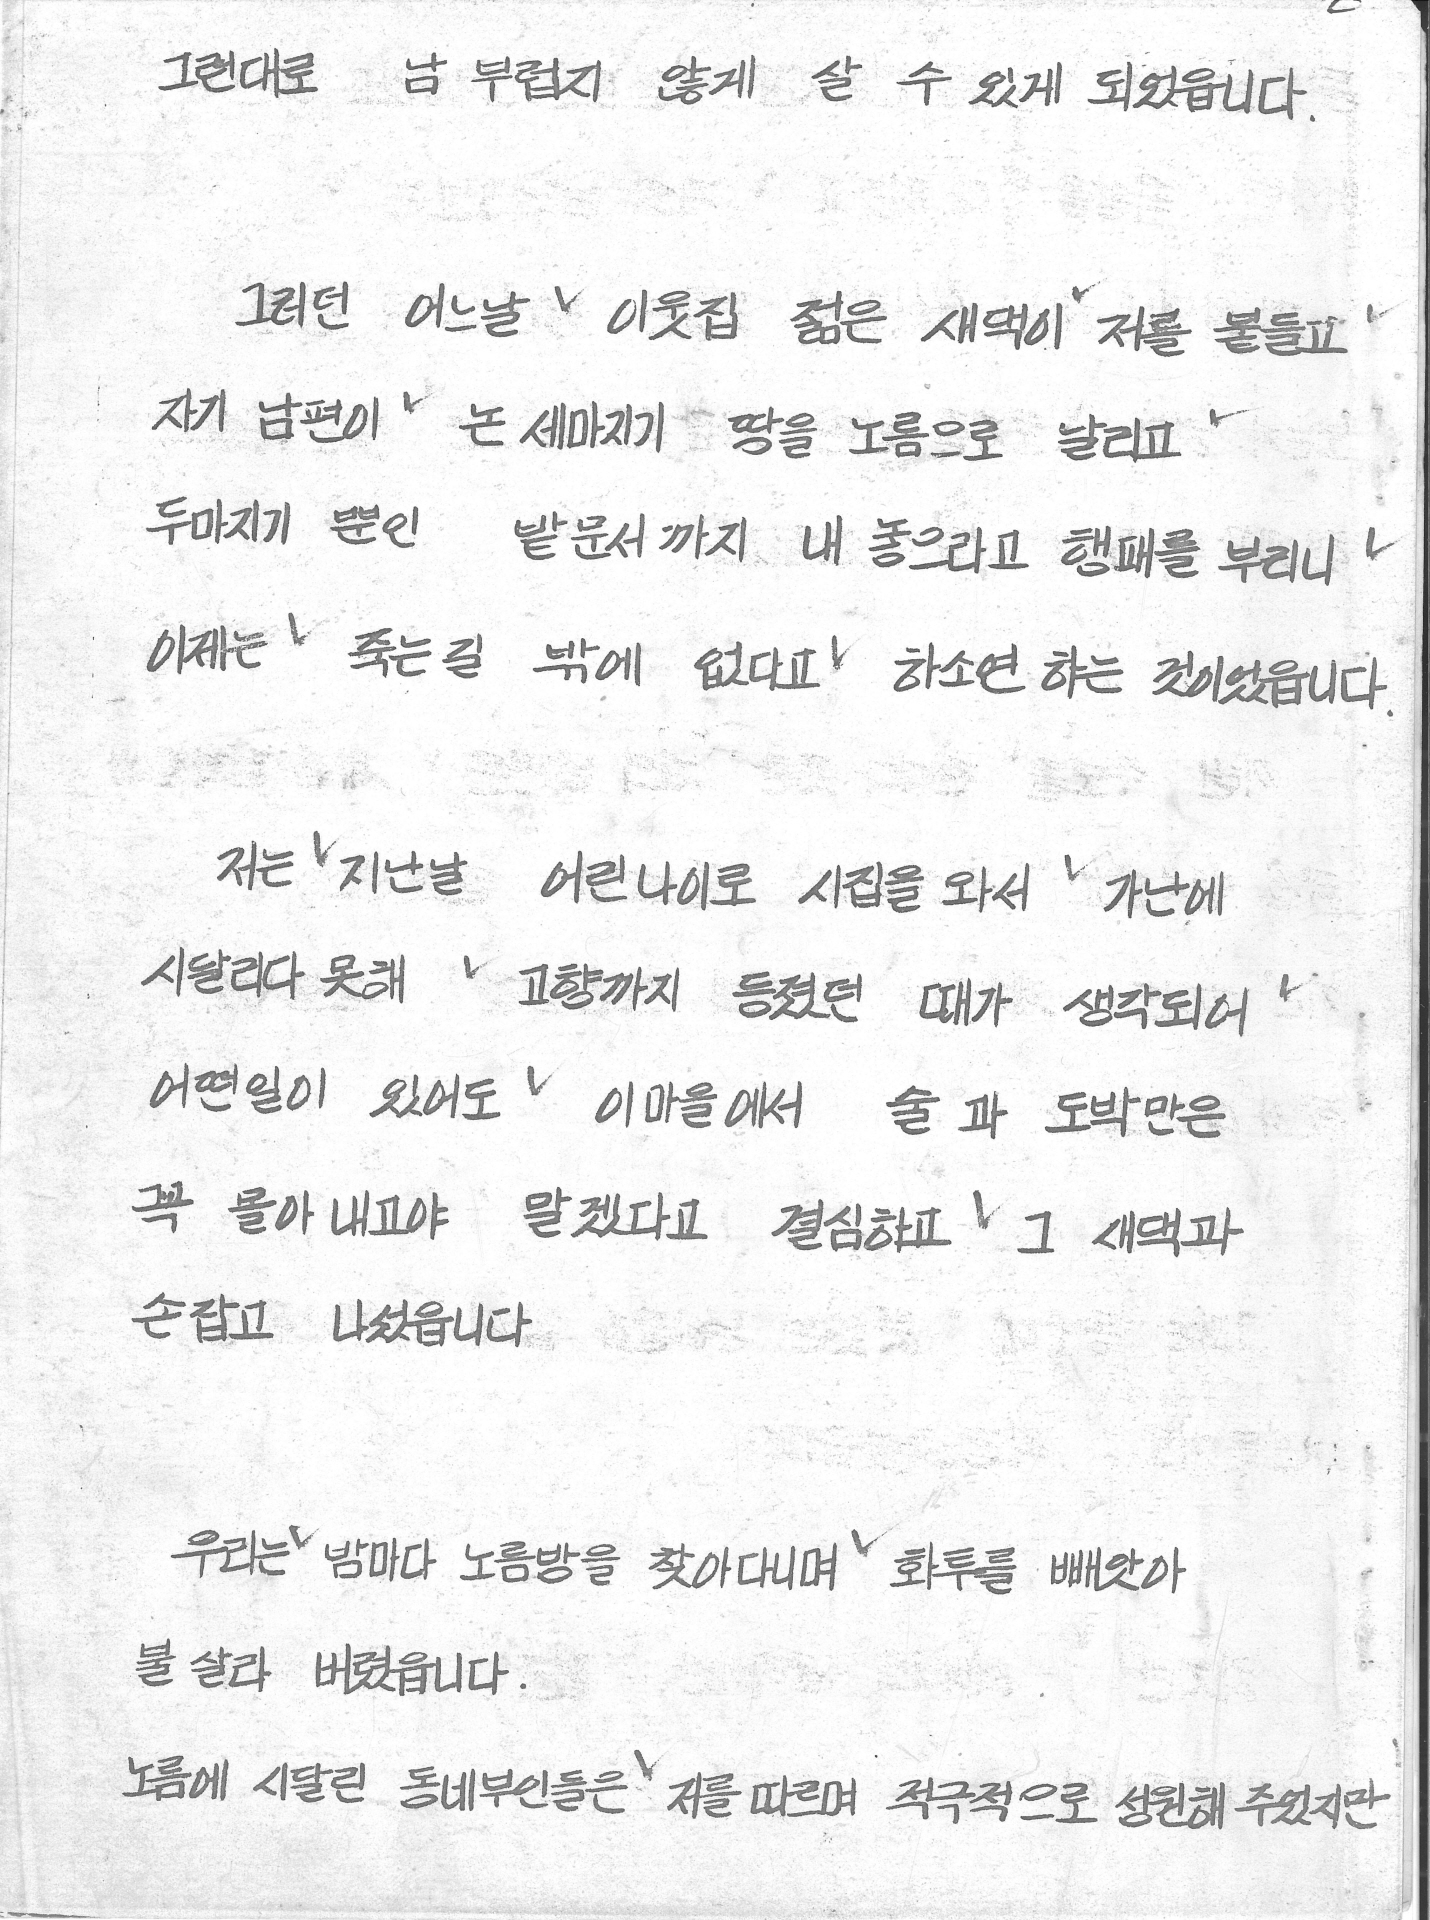 그런대로 남 부럽지 않게 살 수 있게 되었읍니다.
그러던 어느날 ✓ 이웃집 젊은 새댁이 ✓ 저를 붙들고 ✓
자기 남편이 ✓ 논 세마지기 땅을 노름으로 날리고 ✓
두마지기 뿐인 밭문서까지 내 놓으라고 행패를 부리니 ✓
이제는 ✓ 죽는길 밖에 없다고 ✓ 하소연 하는 것이었읍니다.
저는 ✓ 지난날 어린나이로 시집을 와서 ✓ 가난에
시달리다 못해 ✓ 고향까지 등졌던 때가 생각되어 ✓
어떤일이 있어도 ✓ 이마을에서 술과 도박만은
꼭 몰아내고야 말겠다고 결심하고 ✓ 그 새댁과
손잡고 나섰읍니다
우리는 ✓ 밤마다 노름방을 찾아다니며 ✓ 화투를 빼앗아
불 살라 버렸읍니다.
노름에 시달린 동네부인들은 ✓ 저를 따르며 적극적으로 성원해 주었지만